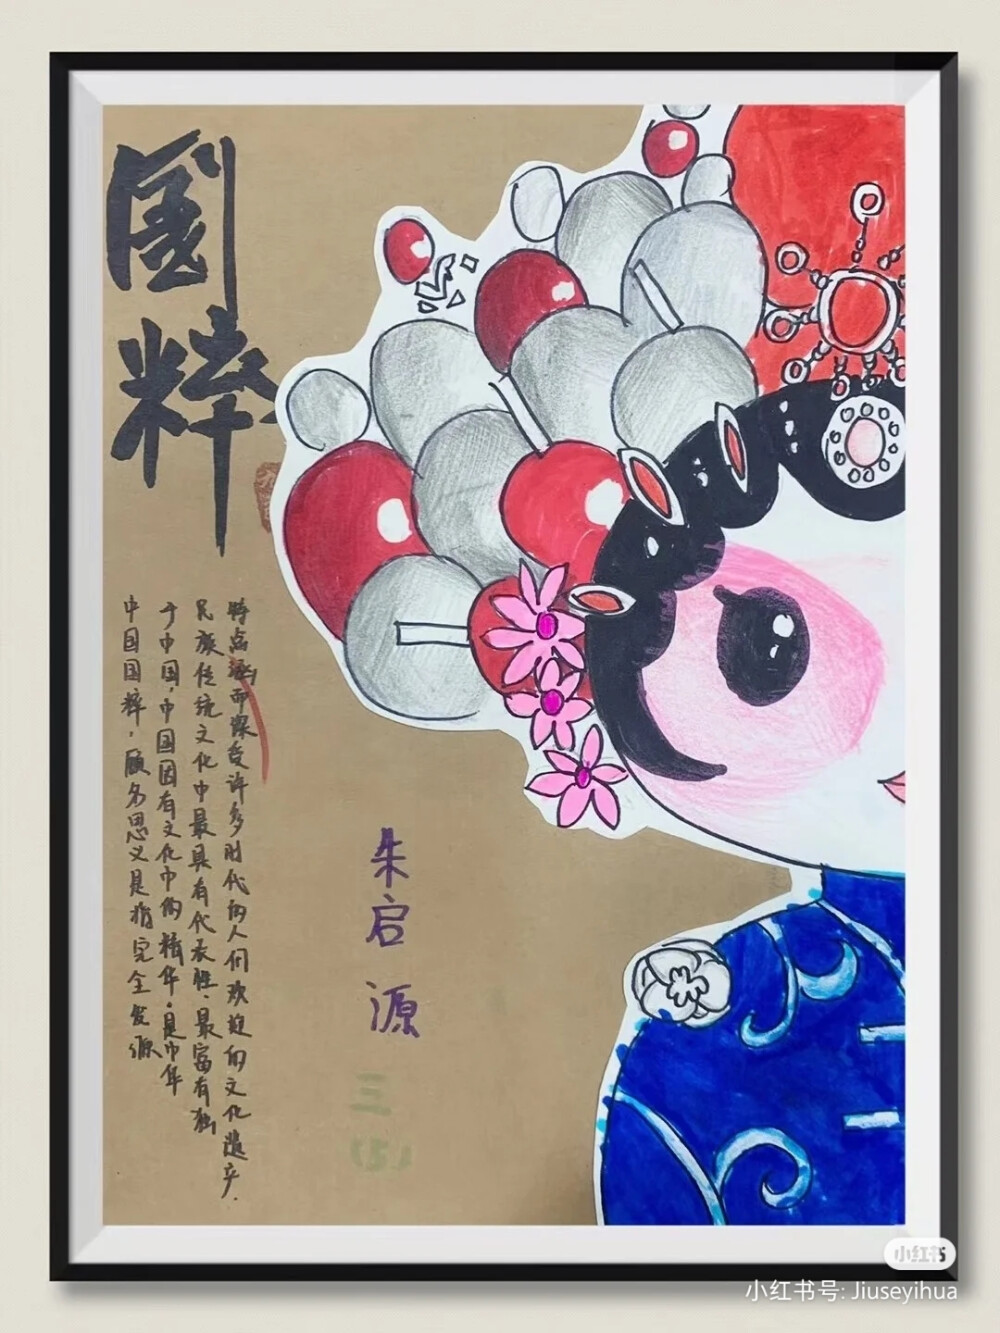 國粹
中国国粹，顾名思义是指完全发源
于中国，中国固有文化中的精华。是中华
民族传统文化中最具有代表性、最富有独
特点而深受许多时代的人们欢迎的文化遗产.
朱启源
三(5)
小红书
小红书号: Jiuseyihua